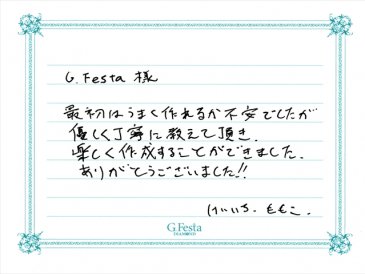 G.Festa 様
最初はうまく作れるか不安でしたが
優しく丁寧に教えて頂き、
楽しく作成することができました。
ありがとうございました!!
けいいち. ももこ.
G.Festa
DIAMOND